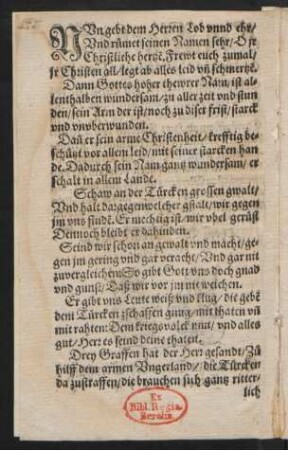 NVn gebt dem Herren Lob vnnd ehr/
Vnd rümet seinen Namen sehr/ O jr
Christliche hertzẽ, Frewt euch zumal/
jr Christen all/ legt ab alles leid vñ schmertzẽ.
Dann Gottes hoher thewrer Nam/ ist al-
lenthalben wundersam/ zu aller zeit vnd stun
den/ sein Arm der ist/ noch zu diser frist/ starck
vnd vnvberwunden.
Dañ er sein arme Christenheit/ krefftig be-
schützt vor allem leid/ mit seiner starcken han
de. Dadurch sein Nam gantz wundersam/ er
schalt in allem Lande.
Schaw an der Türcken grossen gwalt/
Vnd halt da gegen welcher gstalt/ wir gegen
jm vns findẽ. Er mechtig ist/ wir vbel gerüst
Dennoch bleibt er dahinden.
Seind wir schon an gewalt vnd macht/ ge-
gen jm gering vnd gar veracht/ Vnd gar nit
zuvergleichen/ So gibt Gott vns doch gnad
vnd gunst/ Daß wir vor jm nit weichen.
Er gibt vns Leute weiß vnd klug/ die gebẽ
dem Türcken zschaffen gnug/ mit thaten vñ
mit rahten: Dem kriegsvolck mut/ vnd alles
gut/ Herr es seind deine thaten.
Drey Graffen hat der Herr gesandt/ Zů
hilff dem armen Vngerland/ die Türcken
da zustraffen/ die brauchen sich gantz ritter-
lich
Ex
Bibl. Regia
Berolin.